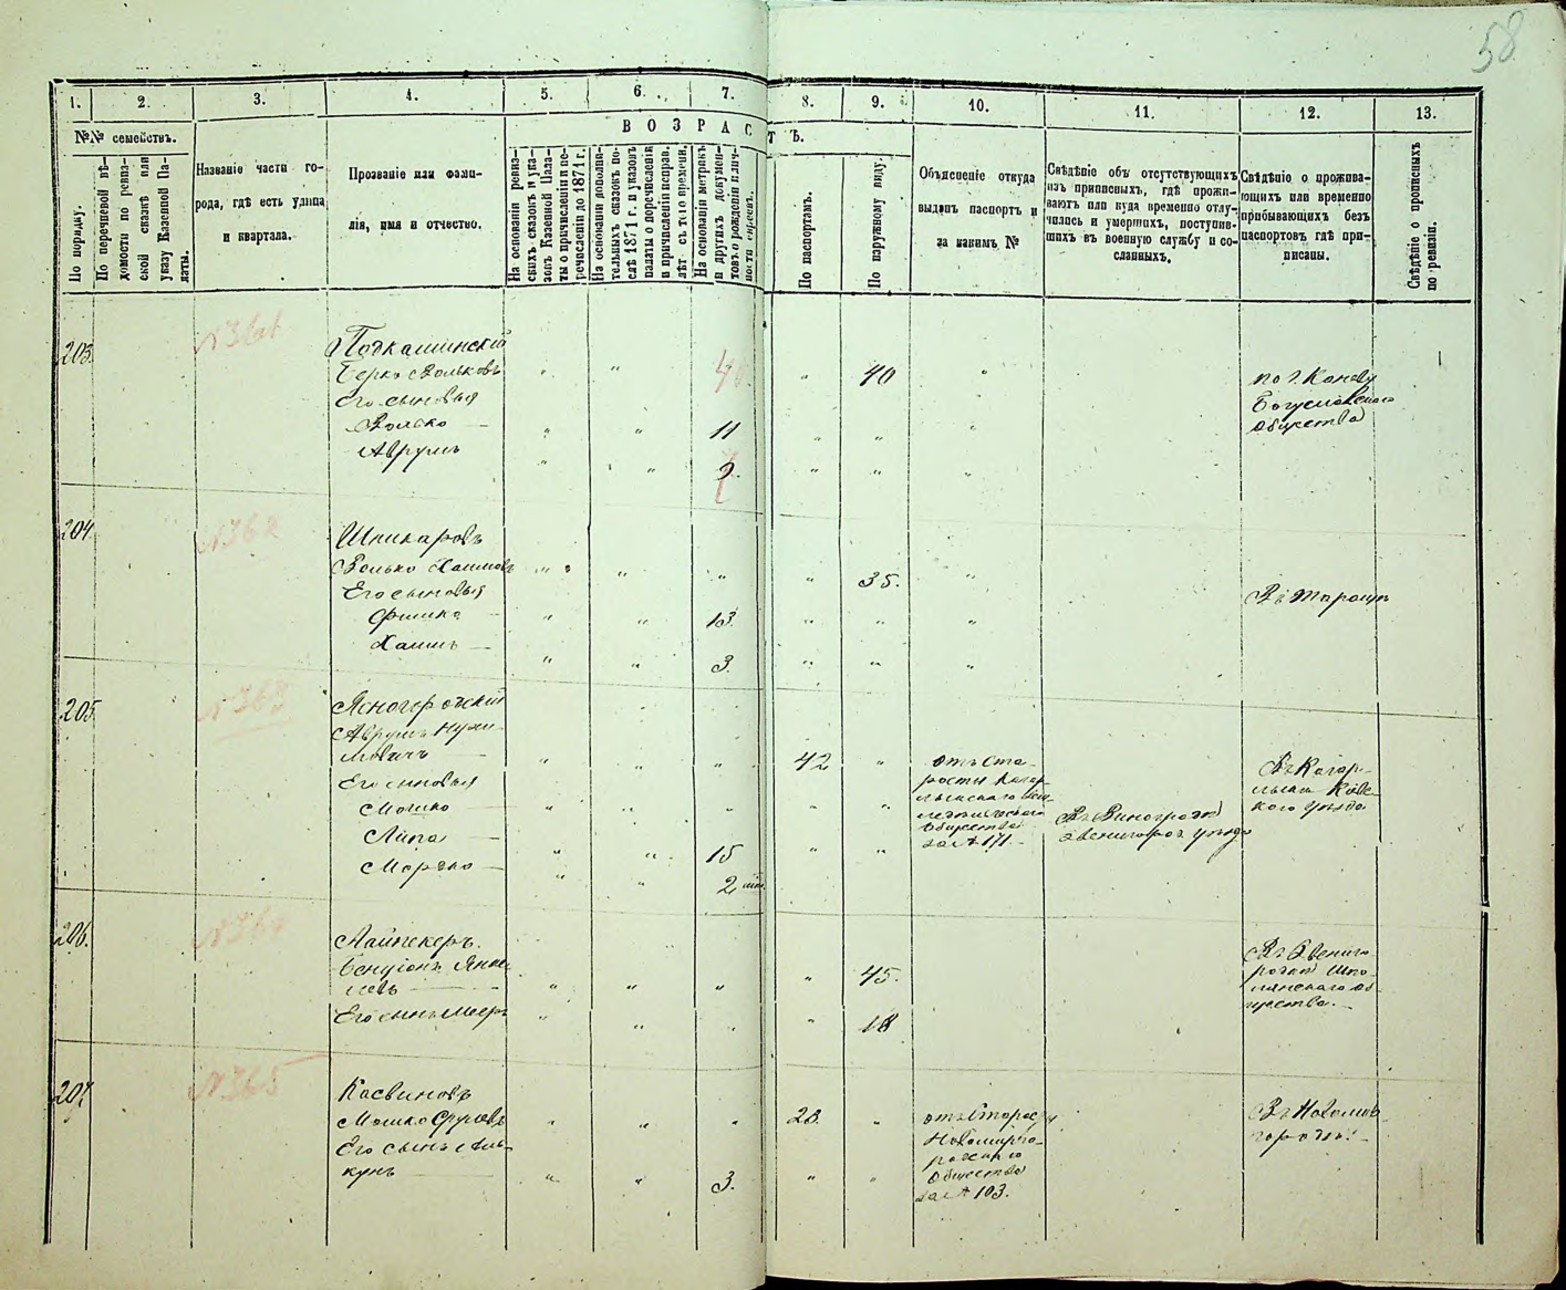 58
1. 2. 3. 4. 5. 6. 7. 8. 9. 10. 11. 12. 13.
№№ семействъ.
По порядку.
По перечневой вѣ-
домости по ревиз-
ской сказкѣ или
указу Казенной Па-
латы.
Названіе части го-
рода, гдѣ есть улица
и квартала.
Прозваніе или фами-
лія, имя и отчество.
ВОЗРАСТЪ.
На основаніи ревиз-
скихъ сказокъ и ука-
зовъ Казенной Пала-
ты о причисленіи и пе-
речисленіи до 1871 г.
На основаніи дополни-
тельныхъ сказокъ по-
слѣ 1871 г. и указовъ
палаты о перечисленіи
и причисленіи исправ.
лѣт съ того времени.
На основаніи метрикъ
и другихъ докумен-
товъ о рожденіи и лич-
ности евреевъ.
По паспортамъ.
По наружному виду.
Объясненіе откуда
выданъ паспортъ и
за какимъ №
Свѣдѣніе объ отсутствующихъ
изъ приписныхъ, гдѣ прожи-
ваютъ или куда временно отлу-
чились и умершихъ, поступив-
шихъ въ военную службу и со-
сланныхъ.
Свѣдѣніе о прожива-
ющихъ или временно
прибывающихъ безъ
паспортовъ гдѣ при-
писаны.
Свѣдѣніе о прописныхъ
по ревизіи.
203. №361
Подкаминскій
Берко Вольковъ 40
Его сыновья
Волько 11
Аврумъ
по г. Каневу
Богуславскаго
Общества
204. №362
Шпикаровъ
Волько Хаимовъ 35.
Его сыновья
Фишко 13.
Хаимъ 3.
Въ Таращѣ
205. №363
Ясногородскій
Аврумъ Нухи-
мовичъ 42
Его сыновья
Мошко
Липа 15
Мордко 2
отъ Ста-
росты Кагар-
лыкскаго
Общества
за № 171.
Въ Виноградѣ
Звенигород. уѣзда
Въ Кагар-
лыкѣ Кіев-
каго уѣзда
206. №364
Лайпекеръ.
Бенціонъ Янке-
левъ 45.
Его сынъ Мееръ 18
Въ Звениго-
родкѣ Шпо-
лянскаго Об-
щества.
207. №365
Касвиновъ
Мошко Сруловъ 28.
Его сынъ
кунъ 3.
отъ Старосты
Новомирго-
родскаго
Общества
за № 103.
Въ Новомир-
городѣ.